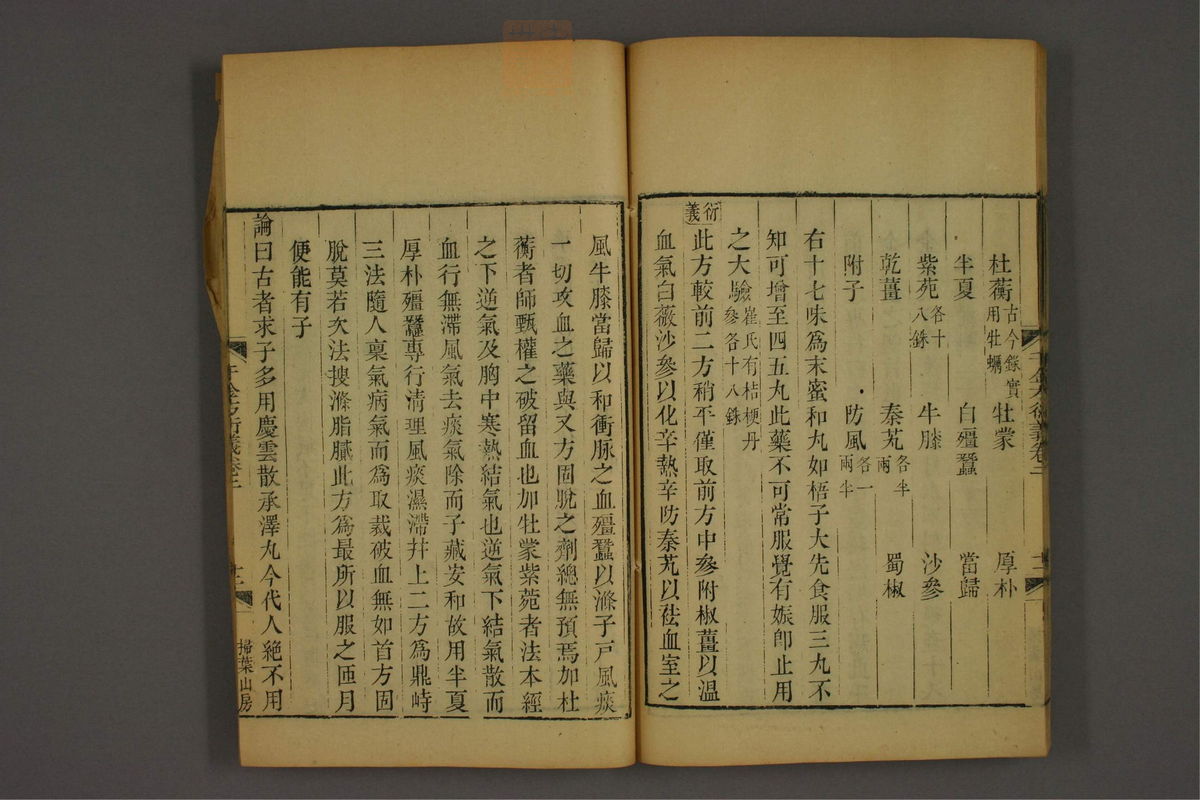 杜蘅古今錄實用牡蠣 牡蒙 厚朴
半夏 白殭蠶 當歸
紫苑各十八銖 牛膝 沙參
乾薑 秦艽各半兩 蜀椒
附子 防風各一兩半
右十七味爲末蜜和丸如梧子大先食服三丸不
知可增至四五丸此藥不可常服覺有娠卽止用
之大驗崔氏有桔梗丹參各十八銖
衍義此方較前二方稍平僅取前方中參附椒薑以溫
血氣白薇沙參以化辛熱辛防秦艽以祛血室之
風牛膝當歸以和衝脉之血殭蠶以滌子戸風痰
一切攻血之藥與又方固脫之劑總無預焉加杜
蘅者師甄權之破留血也加牡蒙紫菀者法本經
之下逆氣及胸中寒熱結氣也逆氣下結氣散而
血行無滯風氣去痰氣除而子藏安和故用半夏
厚朴殭蠶專行清理風痰濕滯幷上二方爲鼎峙
三法隨人稟氣病氣而爲取裁破血無如首方固
脫莫若次法搜滌脂膩此方爲最所以服之匝月
便能有子
論曰古者求子多用慶雲散承澤丸今代人絕不用
千金方衍義卷二 十二 掃葉山房